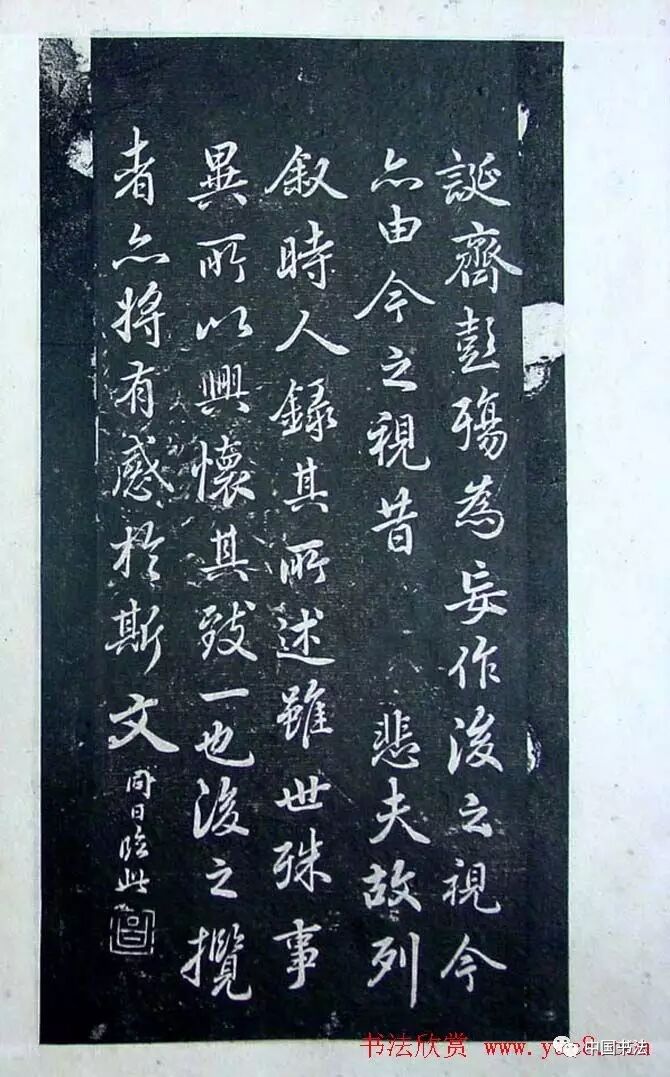 誕齊彭殤為妄作後之視今
亦由今之視昔 悲夫故列
敘時人錄其所述雖世殊事
異所以興懷其致一也後之攬
者亦將有感於斯文
同日臨此
书法欣赏 www.y
8.com
中国书法